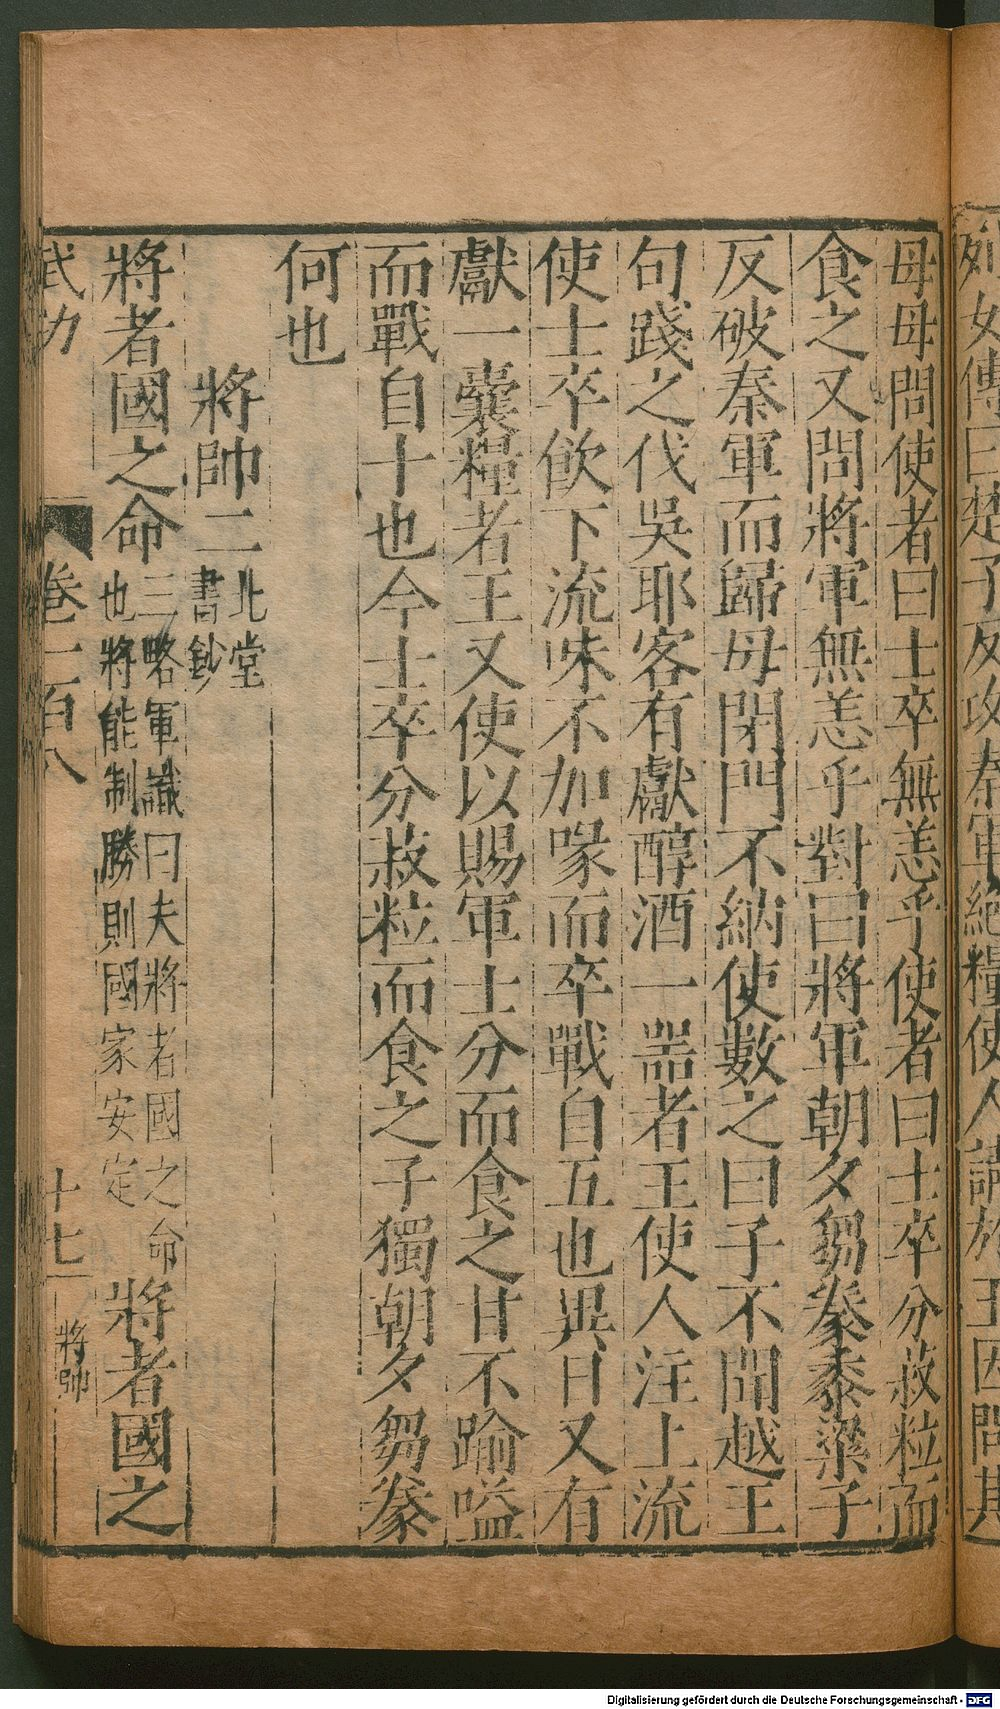 列女傳曰楚子反攻秦軍絕糧使人請於王因問其
母母問使者曰士卒無恙乎使者曰士卒分菽粒而
食之又問將軍無恙乎對曰將軍朝夕芻豢黍粱子
反破秦軍而歸母閉門不納使數之曰子不聞越王
句踐之伐吳耶客有獻醇酒一噐者王使人注上流
使士卒飲下流味不加喙而卒戰自五也異日又有
獻一囊糧者王又使以賜軍士分而食之甘不踰嗌
而戰自十也今士卒分菽粒而食之子獨朝夕芻豢
何也
將帥二 北堂
書鈔
將者國之命 三略軍讖曰夫將者國之命
也將能制勝則國家安定 將者國之
武功 卷一百八 十七 將帥
Digitalisierung gefördert durch die Deutsche Forschungsgemeinschaft - DFG